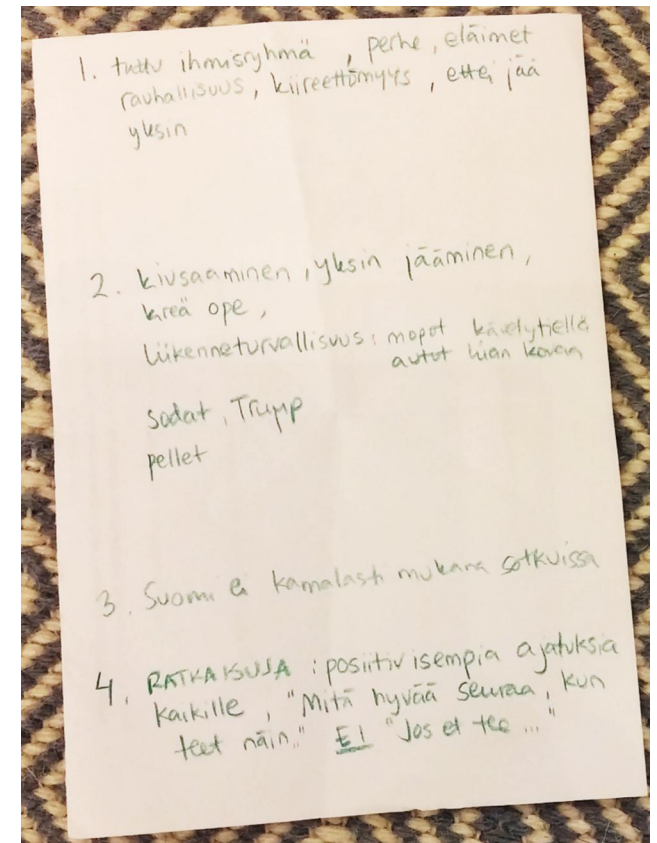 1. tuttu ihmisryhmä , perhe , eläimet
rauhallisuus , kiireettömyys , ettei jää
yksin
2. kiusaaminen , yksin jääminen ,
kireä ope ,
Liikenneturvallisuus : mopot kävelytiellä
autot liian kovaa
sodat , Trump
pellet
3. Suomi ei kamalasti mukana sotkuissa
4. RATKAISUJA : positiivisempia ajatuksia
kaikille , "Mitä hyvää seuraa , kun
teet näin." EI "Jos et tee ..."